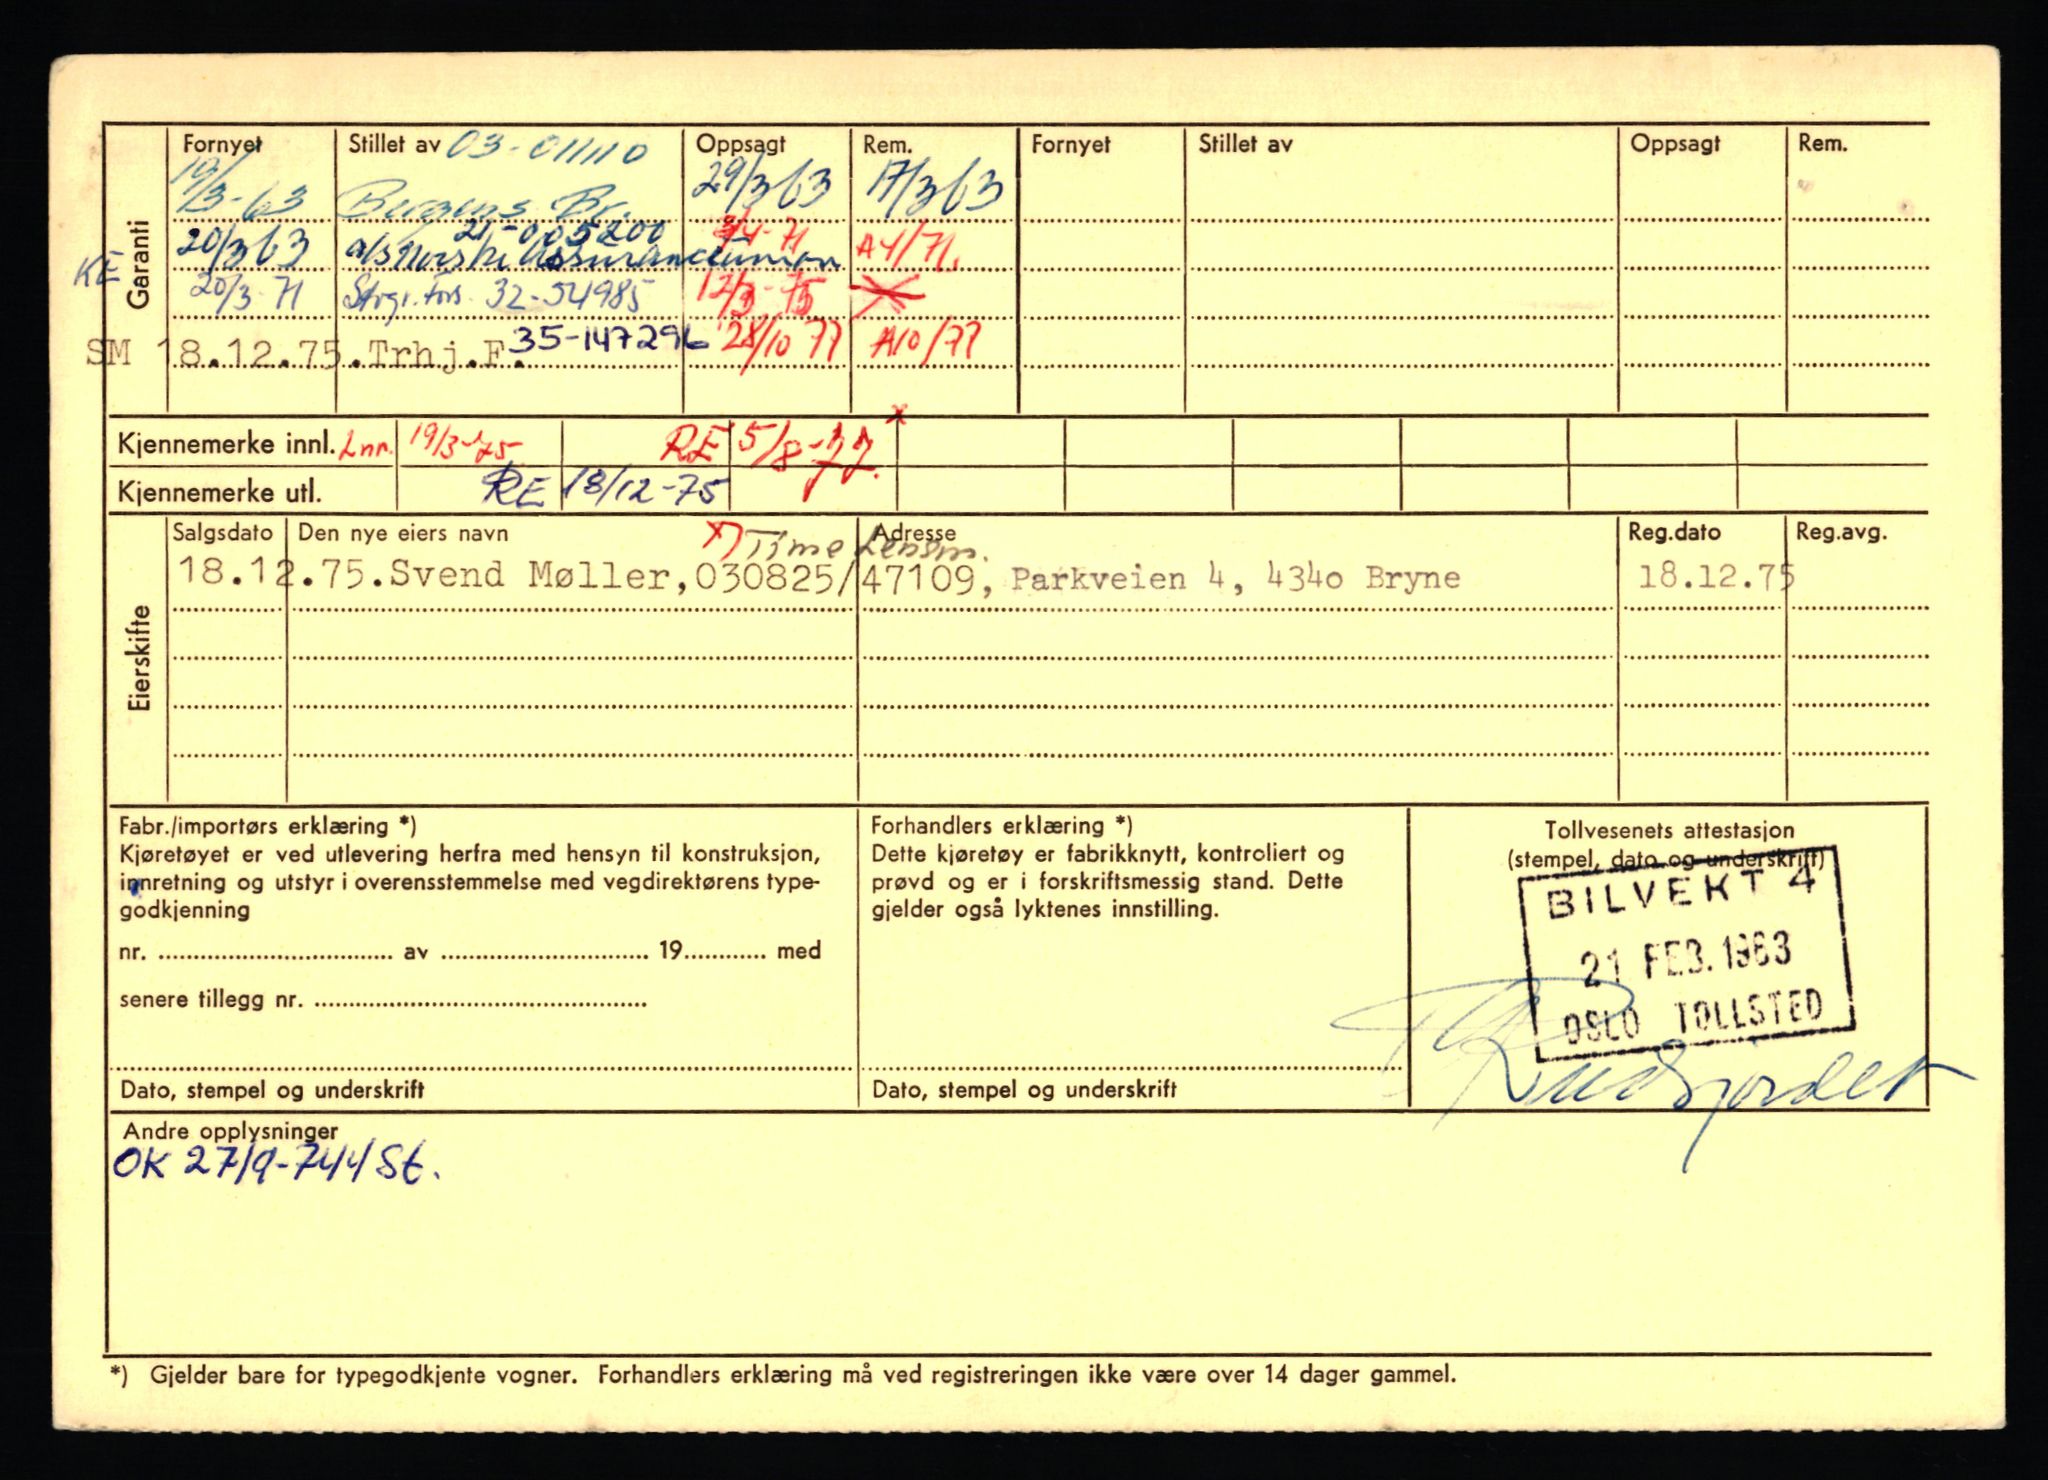 Fornyet Stillet av 03-011110 Oppsagt Rem. Fornyet Stillet av Oppsagt Rem.
Garanti
19/3-63 Bergens Br. 29/3 63 17/3 63
21-005200
20/3 63 a/s Norske Assuranceunion 3/4-71 A4/71.
KE 20/3-71 Strgr. fors. 32-54985 12/3-75
SM 18.12.75. Trhj.F. 35-147296 28/10 77 A10/77
Kjennemerke innl. Lnr. 19/3-75 RE 5/8-77. x
Kjennemerke utl. RE 18/12-75
Eierskifte
Salgsdato Den nye eiers navn x) Time Lensm. Adresse Reg.dato Reg.avg.
18.12.75. Svend Møller, 030825/47109, Parkveien 4, 4340 Bryne 18.12.75
Fabr./importørs erklæring *)
Kjøretøyet er ved utlevering herfra med hensyn til konstruksjon,
innretning og utstyr i overensstemmelse med vegdirektørens type-
godkjenning
nr. av 19 med
senere tillegg nr.
Dato, stempel og underskrift
Forhandlers erklæring *)
Dette kjøretøy er fabrikknytt, kontroliert og
prøvd og er i forskriftsmessig stand. Dette
gjelder også lyktenes innstilling.
Dato, stempel og underskrift
Tollvesenets attestasjon
(stempel, dato og underskrift)
BILVEKT 4
21 FEB. 1963
OSLO TOLLSTED
Andre opplysninger
OK 27/9-744 St.
*) Gjelder bare for typegodkjente vogner. Forhandlers erklæring må ved registreringen ikke være over 14 dager gammel.